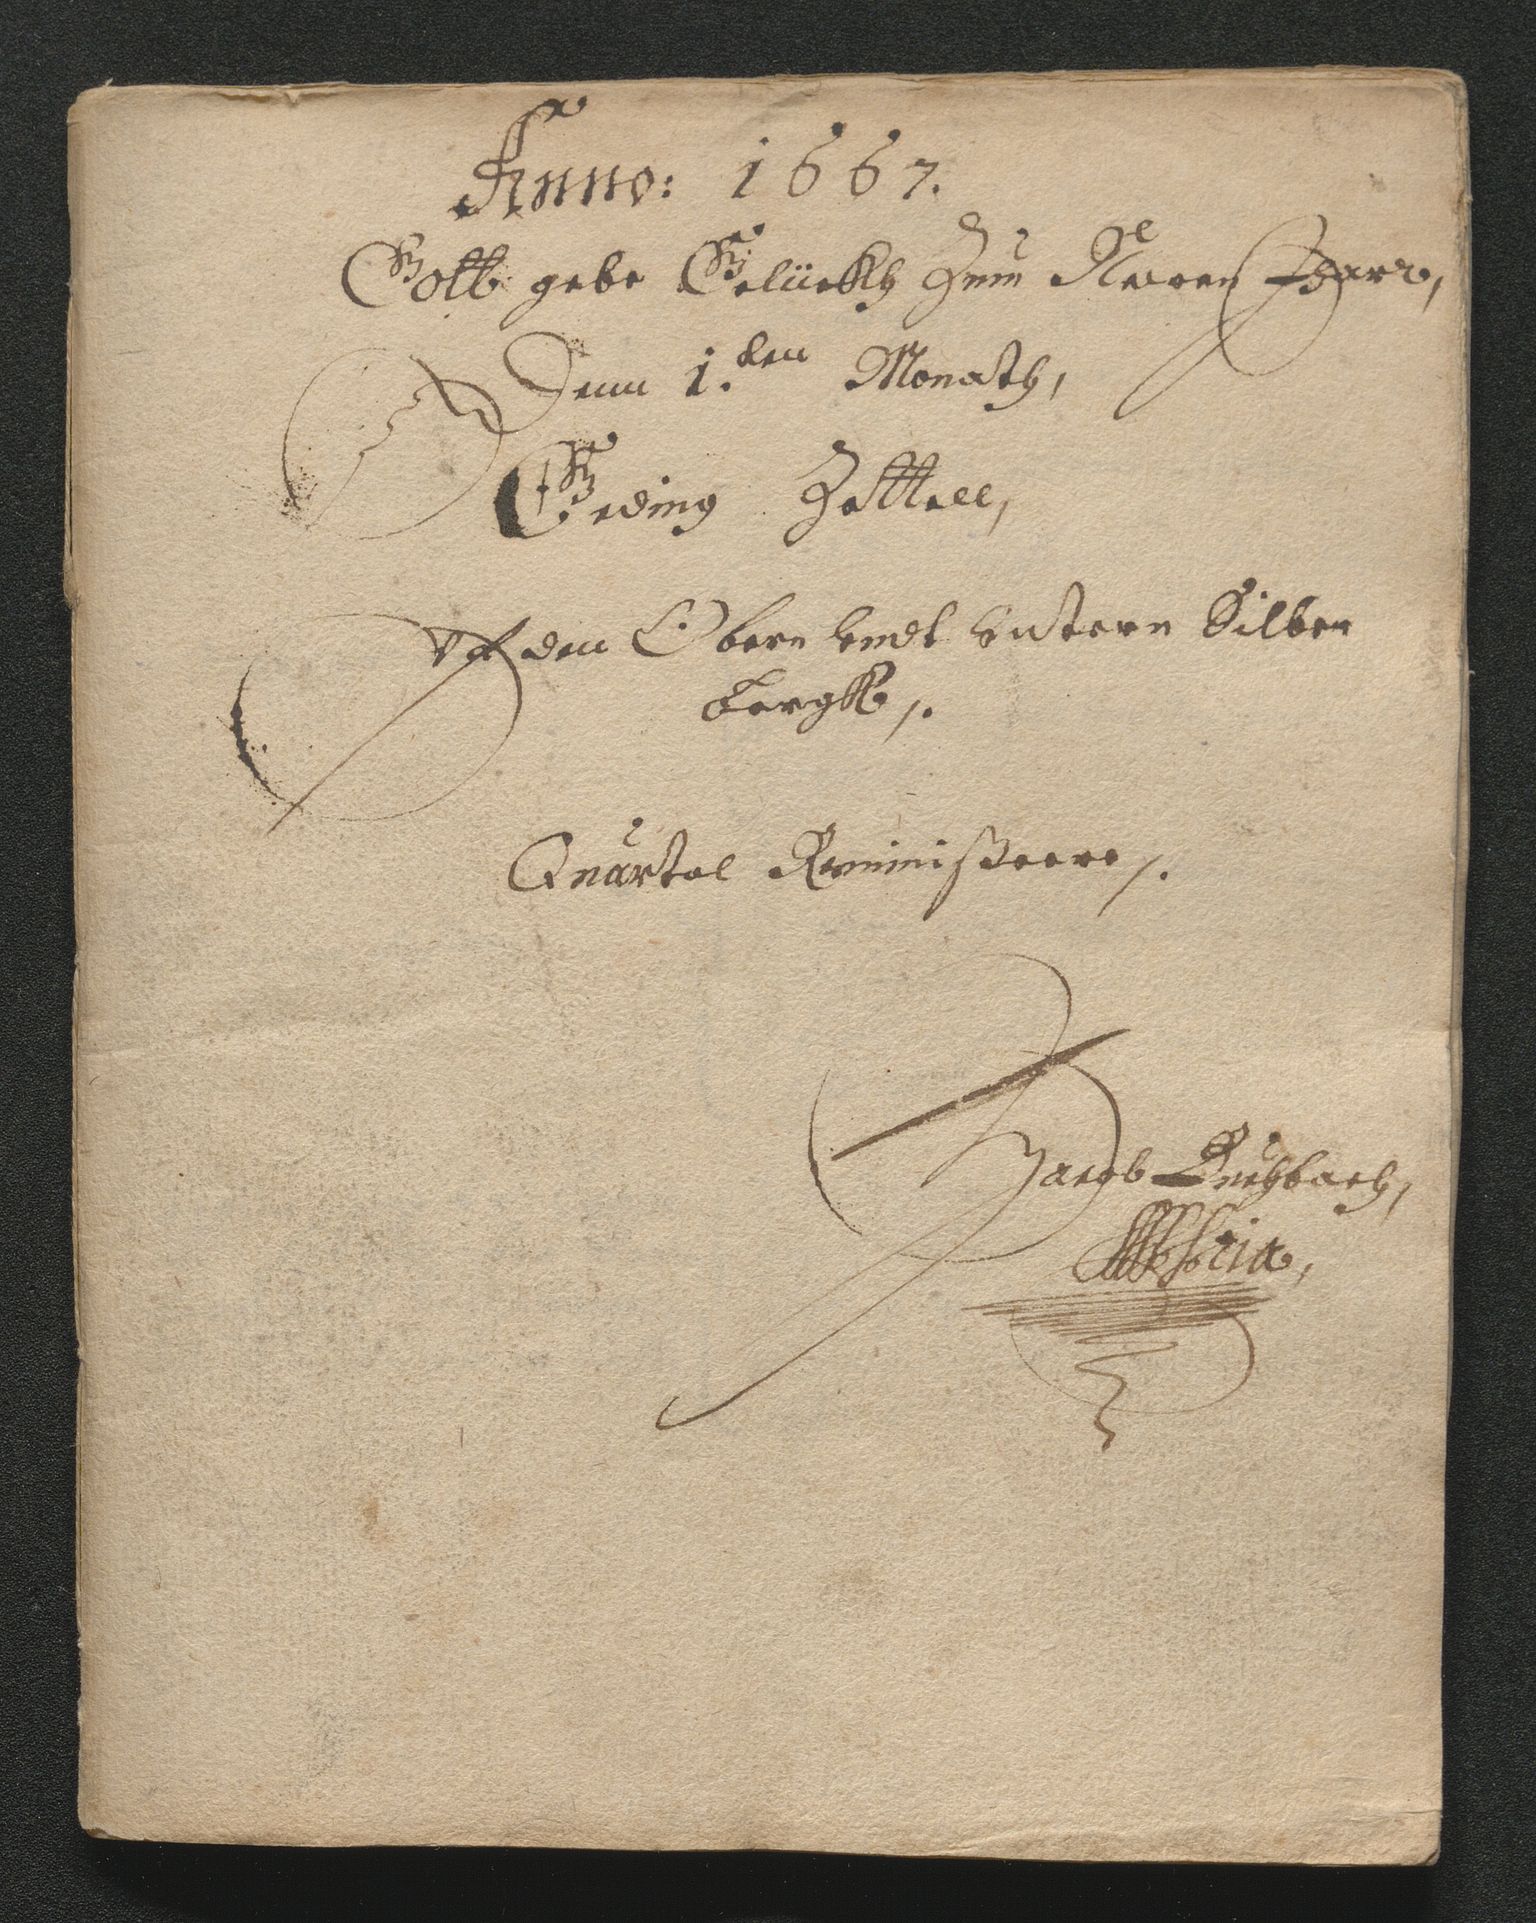 Anno: 1667.
Gott gebe Gelückh Zum Neuen Jhare,
Denn 1.den Monath,
Geding Zettell,
Vf den Obern vndt vntern Silber
bergk /.
Quartal Reminißcere /.
Jacob Buchbach,